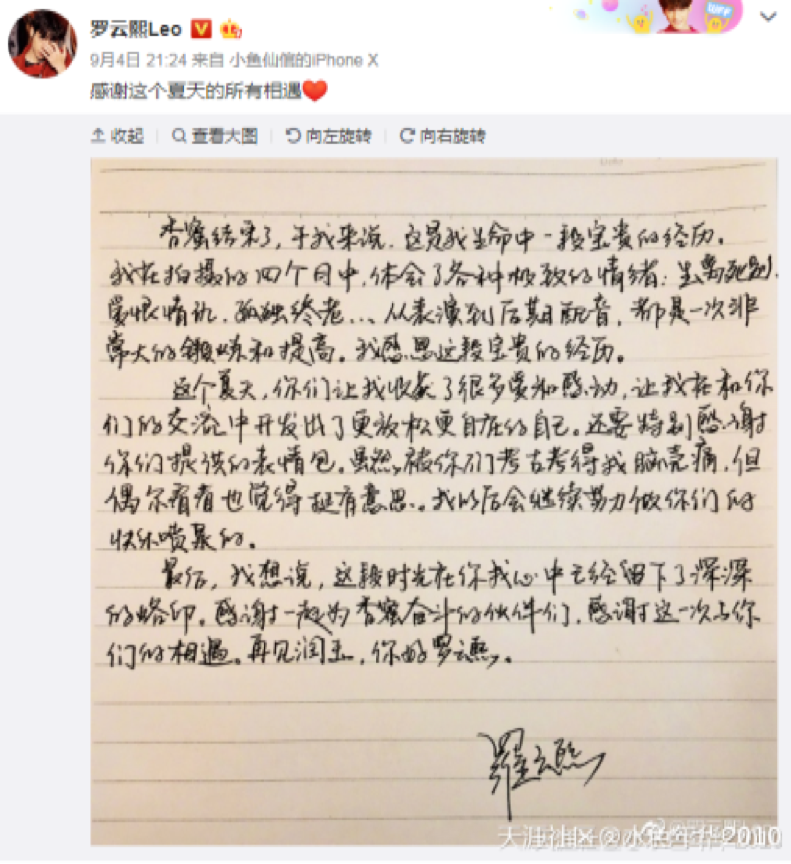 罗云熙Leo
9月4日 21:24 来自 小鱼仙倌的iPhone X
感谢这个夏天的所有相遇❤️
收起 查看大图 向左旋转 向右旋转
香蜜结束了,于我来说,这是我生命中一段宝贵的经历。
我在拍摄的四个月中,体会了各种极致的情绪:生离死别,
爱恨情仇,孤独终老...从表演到后期配音,都是一次非
常大的锻炼和提高。我感恩这段宝贵的经历。
这个夏天,你们让我收获了很多爱和感动,让我在和你
们的交流中开发出了更放松更自在的自己。还要特别感谢
你们提供的表情包。虽然被你们考古考得我脑壳痛,但
偶尔看看也觉得挺有意思。我以后会继续努力做你们的
快乐喷泉的。
最后,我想说,这段时光在你我心中已经留下了深深
的烙印。感谢一起为香蜜奋斗的伙伴们,感谢这一次与你
们的相遇。再见润玉,你好罗云熙。
羅云熙
天涯社区@小鱼年华2010